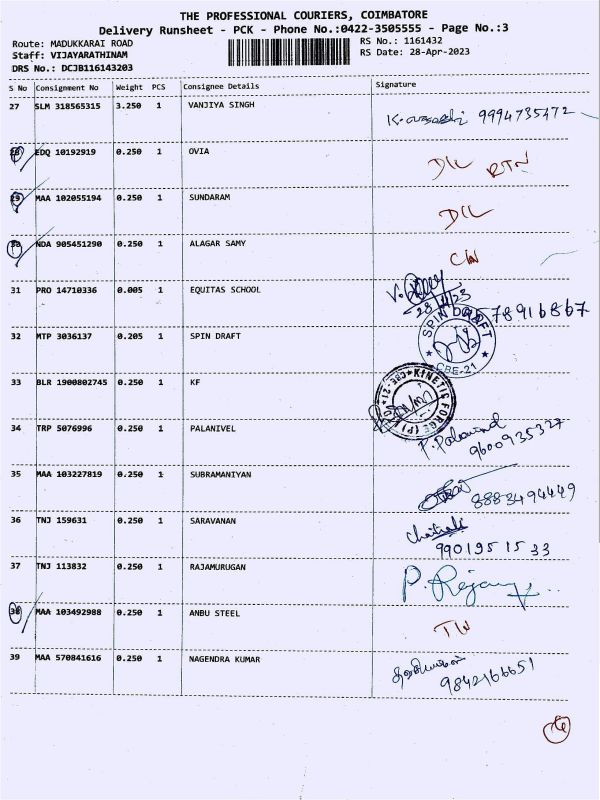 THE PROFESSIONAL COURIERS, COIMBATORE
Delivery Runsheet - PCK - Phone No.:0422-3505555 - Page No.:3
Route: MADUKKARAI ROAD
Staff: VIJAYARATHINAM
DRS No.: DCJB116143203
RS No.: 1161432
RS Date: 28-Apr-2023
S No Consignment No Weight PCS Consignee Details Signature
27 SLM 318565315 3.250 1 VANJIYA SINGH 9994735472
28 EDQ 10192919 0.250 1 OVIA D/L RTN
29 MAA 102055194 0.250 1 SUNDARAM D/L
30 NDA 905451290 0.250 1 ALAGAR SAMY
31 PRO 14710336 0.005 1 EQUITAS SCHOOL
32 MTP 3036137 0.205 1 SPIN DRAFT SPIN DRAFT CBE-21
33 BLR 1900802745 0.250 1 KF KINETIC FORGE (P) LTD CBE-21
34 TRP 5076996 0.250 1 PALANIVEL 9600935327
35 MAA 103227819 0.250 1 SUBRAMANIYAN 8883494449
36 TNJ 159631 0.250 1 SARAVANAN 9901951533
37 TNJ 113832 0.250 1 RAJAMURUGAN
38 MAA 103492988 0.250 1 ANBU STEEL
39 MAA 570841616 0.250 1 NAGENDRA KUMAR 9842166651